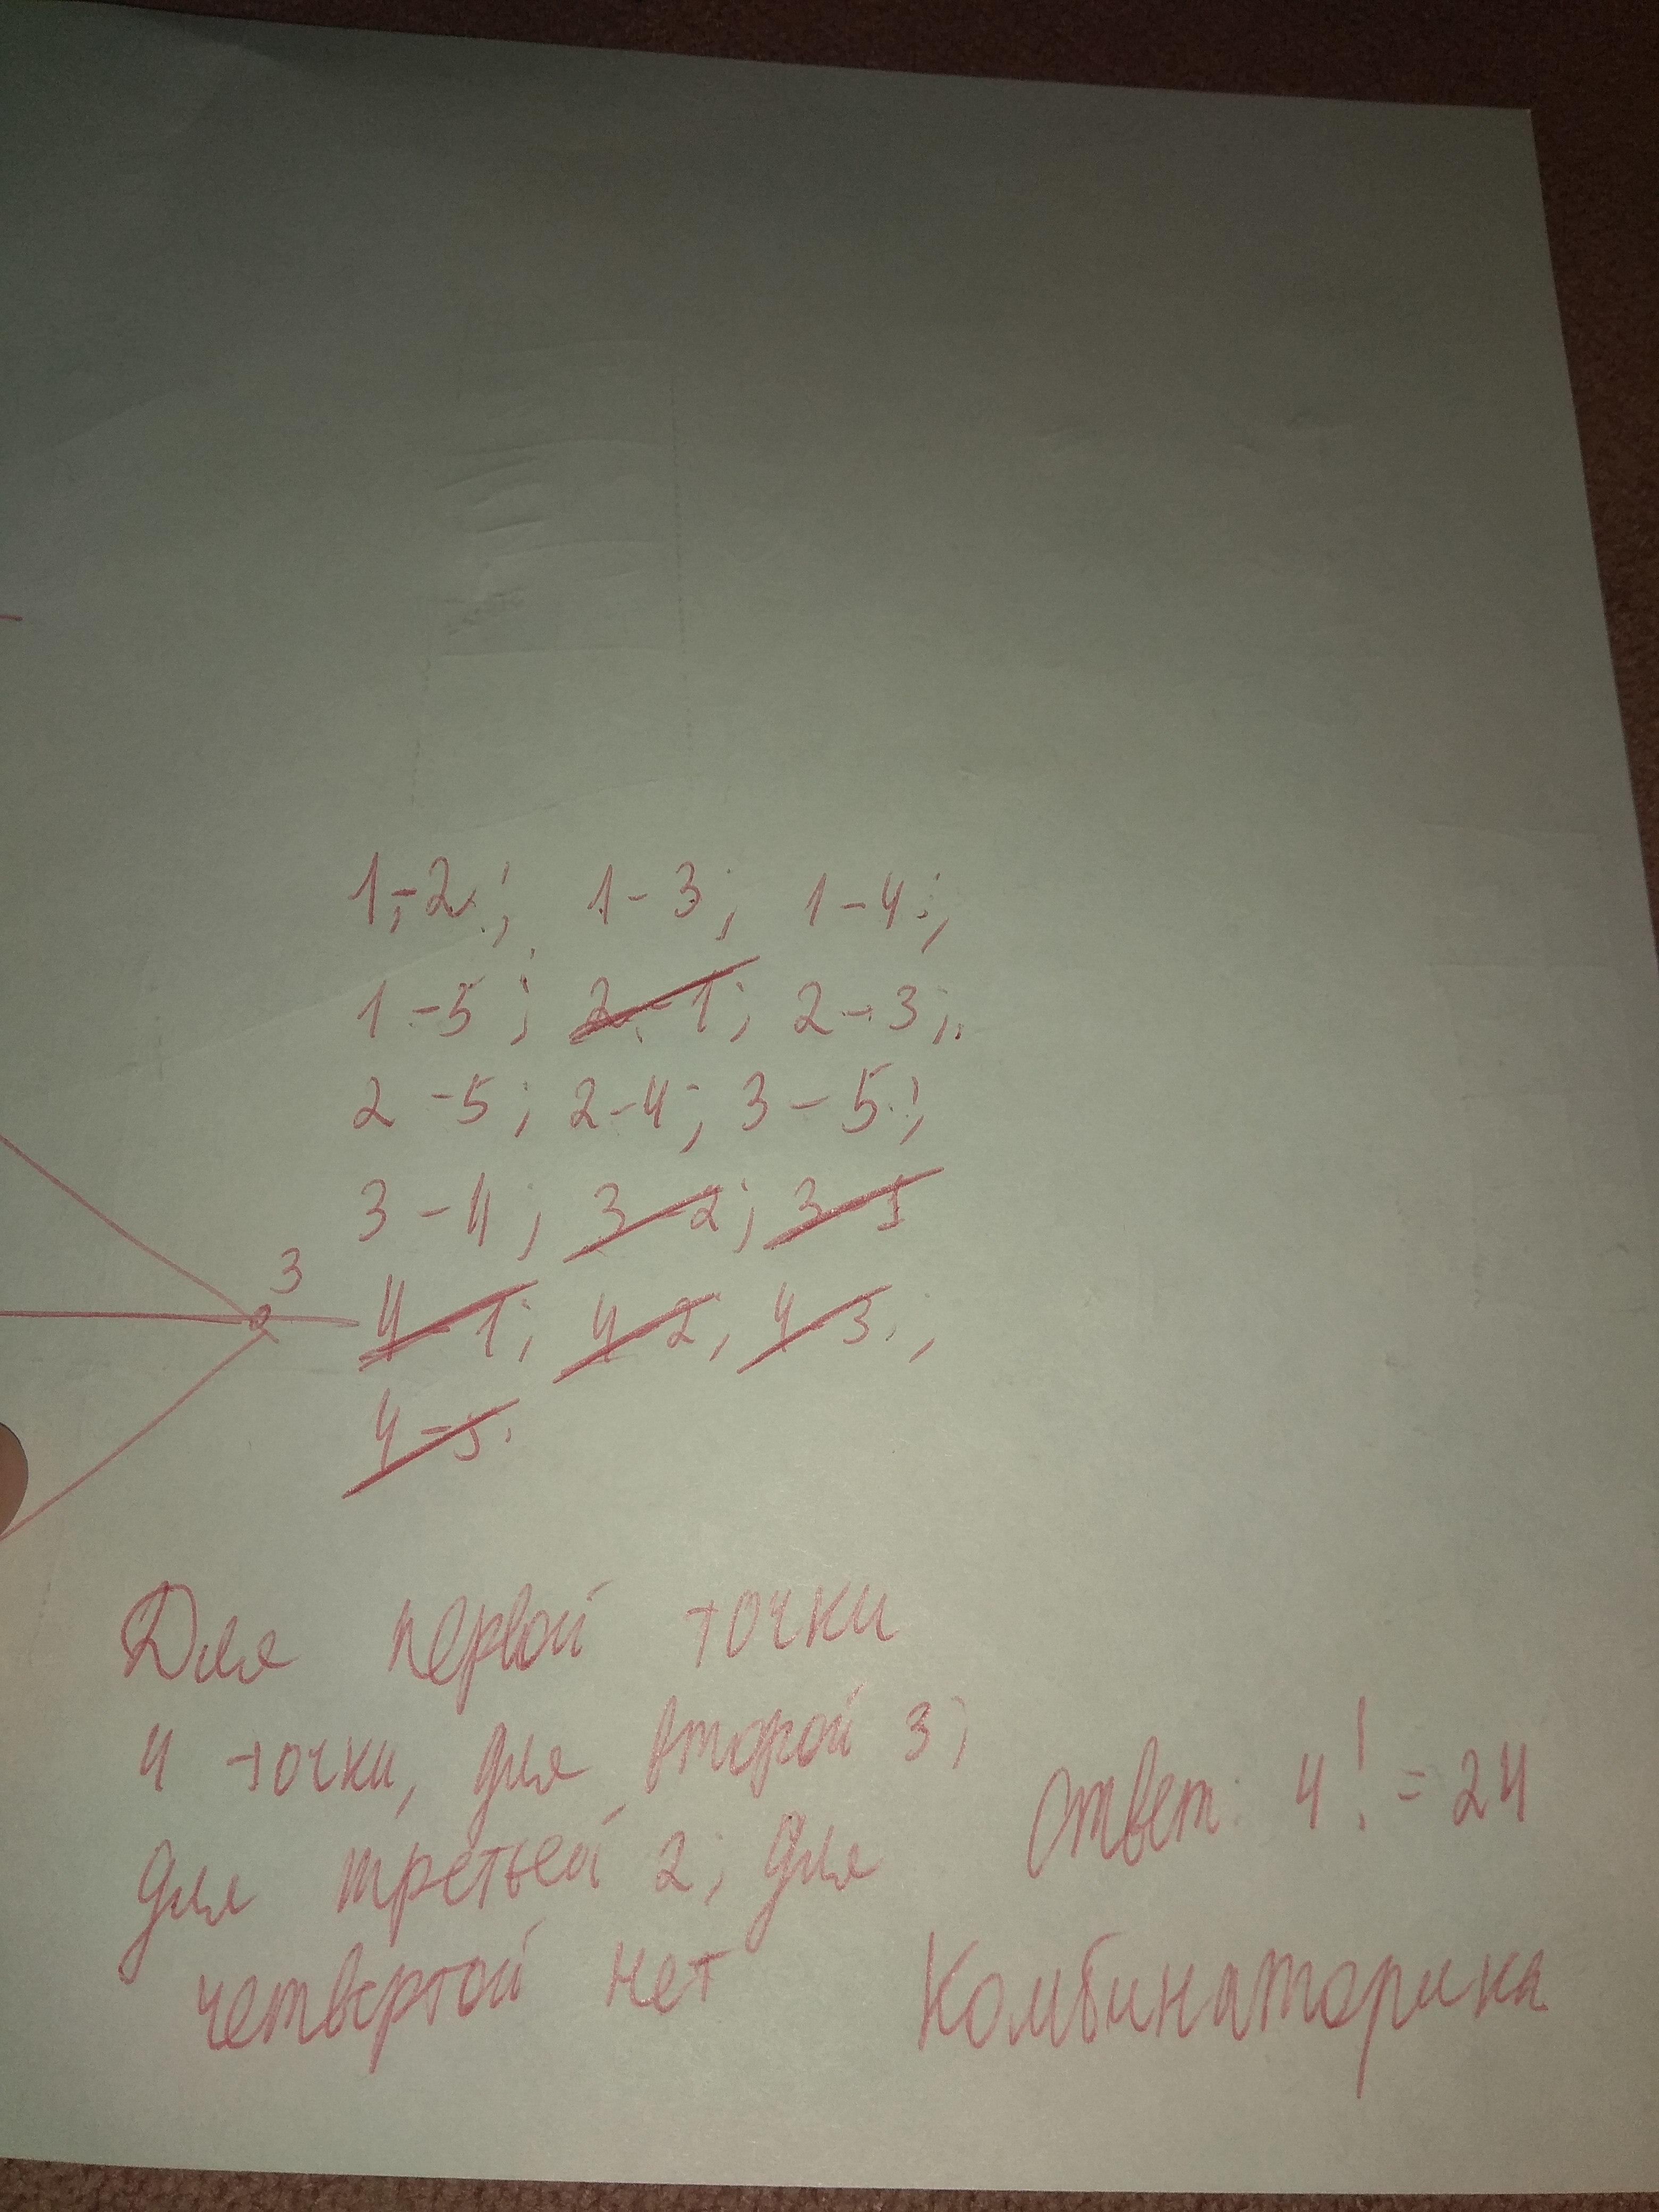 1-2; 1-3; 1-4;
1-5; 2-1; 2-3;
2-5; 2-4; 3-5;
3-4; 3-2; 3-1
3
4-1; 4-2; 4-3;
4-5.
Для первой точки
4 точки, для второй 3;
для третьей 2; для
четвёртой нет
Ответ: 4! = 24
Комбинаторика